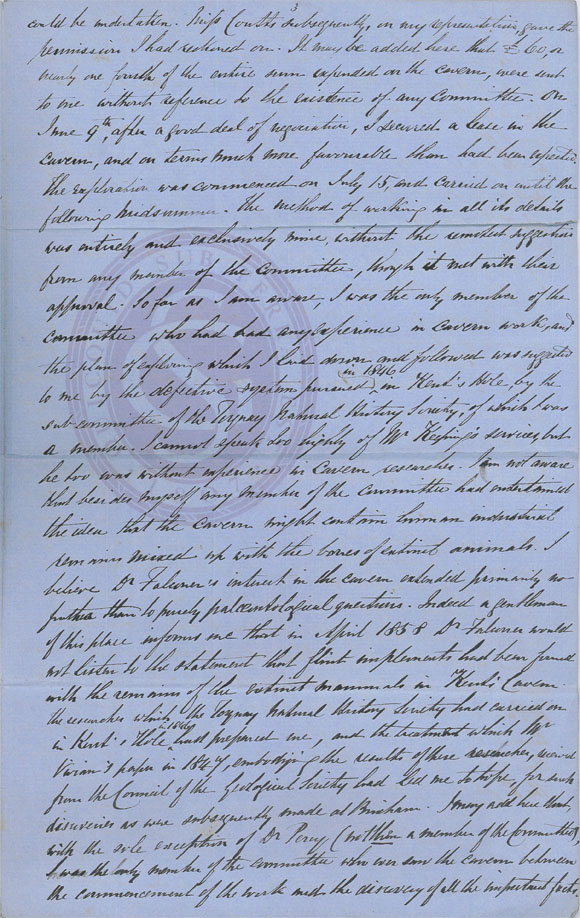 3
could be undertaken. Miss Coutts subsequently, on my representation, gave the
permission I had reckoned on. It may be added here that £60, or
nearly one fourth of the entire sum expended on the cavern, were sent
to me without reference to the existence of any Committee. On
June 9th, after a good deal of negociation, I secured a lease in the
cavern, and on terms much more favourable than had been expected.
The Exploration was commenced on July 15, and carried on until the
following midsummer. The method of working in all its details
was entirely and exclusively mine, without the remotest suggestion
from any member of the Committee, though it met with their
approval. So far as I am aware, I was the only member of the
Committee who had had any experience in cavern work, and
the plan of exploring which I laid down and followed was suggested
to me by the defective system pursued in 1846 in Kent's Hole, by the
sub-committee of the Torquay Natural History Society, of which I was
a member. I cannot speak too highly of Mr Keeping's services, but
he too was without experience in cavern researches. I am not aware
that besides myself any member of the committee had entertained
the idea that the cavern might contain human industrial
remains mixed up with the bones of extinct animals. I
believe Dr Falconer's interest in the cavern extended primarily no
further than to purely palæontological questions. Indeed a gentleman
of this place informs me that in April 1858 Dr Falconer would
not listen to the statement that flint implements had been found
with the remains of the extinct mammals in Kent's Cavern.
the researches which the Torquay Natural History Society had carried on
in Kent's Hole 1846 had prepared me, and the treatment which Mr
Vivian's paper in 1847, embodying the results of these researches, received
from the Council of the Geological Society had led me to hope, for such
discoveries as were subsequently made at Brixham. I may add here that,
with the sole exception of Dr Percy (not then a member of the Committee),
I was the only member of the committee who ever saw the cavern between
the commencement of the work and the discovery of all the important facts